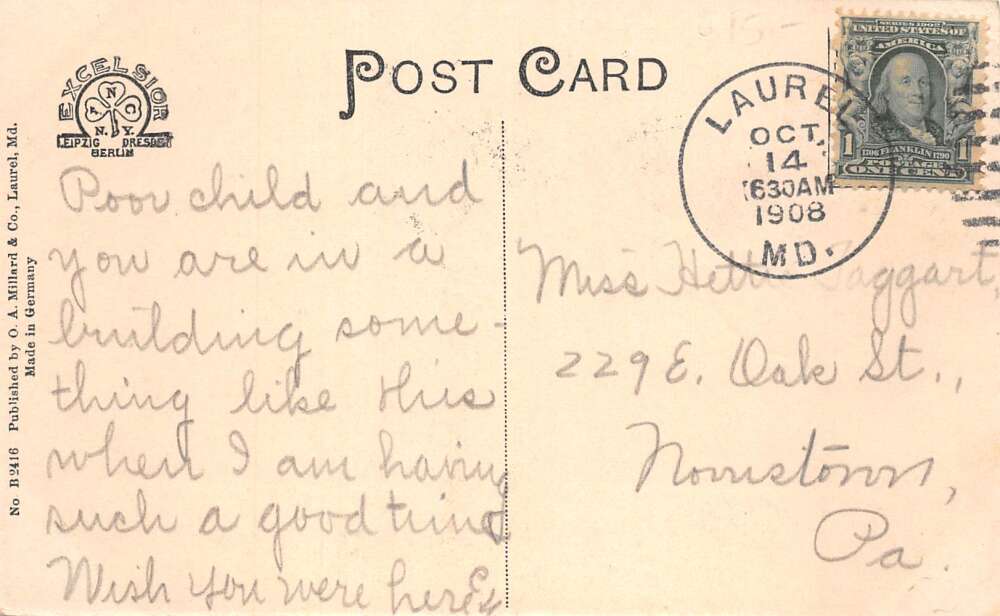 POST CARD
EXCELSIOR
A N C
N. Y.
LEIPZIG DRESDEN
BERLIN
No B2416 Published by O. A. Millard & Co., Laurel, Md.
Made in Germany
Poor child and
you are in a
building some-
thing like this
when I am having
such a good time
Wish you were here
LAUREL
OCT.
14
630AM
1908
MD.
SERIES 1902
UNITED STATES OF
AMERICA
1706 FRANKLIN 1790
1 POSTAGE 1
ONE CENT
Miss Hettie Taggart,
229 E. Oak St.,
Norristown,
Pa.